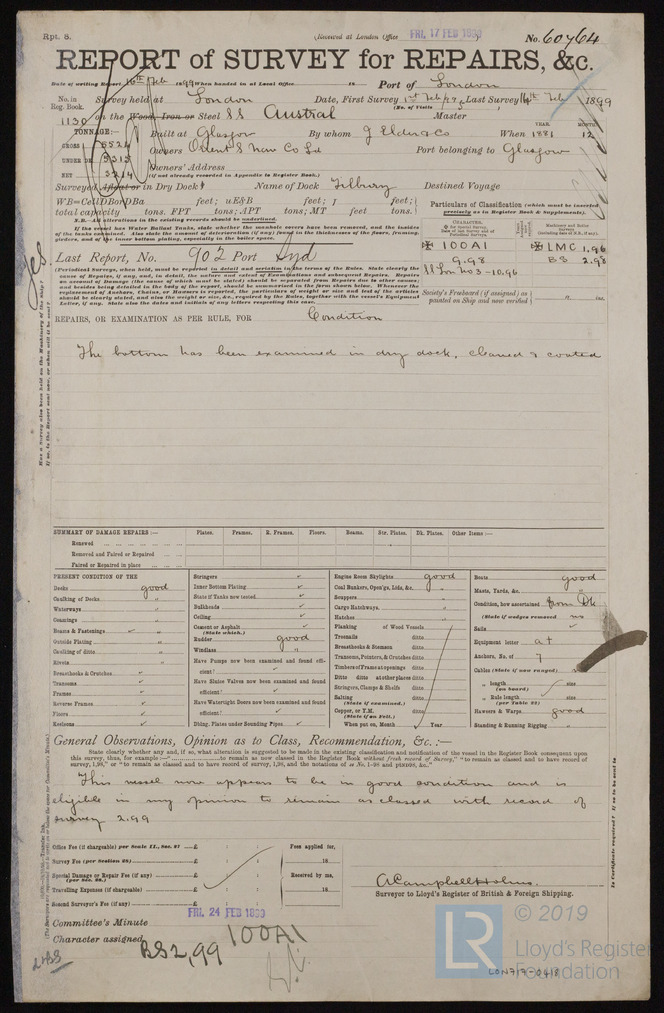 Rpt. 8.
(Received at London Office FRI. 17 FEB 1899)
No. 60764
REPORT of SURVEY for REPAIRS, &c.
Date of writing Report 16th Feb 1899 When handed in at Local Office 18 Port of London
No. in Reg. Book. Survey held at London Date, First Survey 1st Feb Last Survey 14th Feb 1899
(No. of Visits )
1130 on the Wood, Iron or Steel SS Austral Master
TONNAGE:— Built at Glasgow By whom J Elder & Co When 1881 12
YEAR. MONTH.
GROSS 5524 Owners Orient S Nav Co Ld Port belonging to Glasgow
UNDER DK. 5313 Owners' Address
NET 3214 (if not already recorded in Appendix to Register Book.)
Surveyed Afloat or in Dry Dock Name of Dock Tilbury Destined Voyage
WB=CellDBorDBa feet; uE&B feet; f feet;
total capacity tons. FPT tons; APT tons; MT feet tons.
Particulars of Classification (which must be inserted precisely as in Register Book & Supplements).
N.B.—All alterations in the existing records should be underlined.
If the vessel has Water Ballast Tanks, state whether the manhole covers have been removed, and the insides
of the tanks examined. Also state the amount of deterioration (if any) found in the thicknesses of the floors, framing,
girders, and of the inner bottom plating, especially in the boiler space.
✠ 100A1 ✠ LMC 1,96
9.98 BS 2,98
SS Lon No 3-10,96
Last Report, No. 902 Port Syd
(Periodical Surveys, when held, must be reported in detail and seriatim in the terms of the Rules. State clearly the
cause of Repairs, if any, and, in detail, the nature and extent of Examinations and subsequent Repairs. Repairs
on account of Damage (the cause of which must be stated) should be separated from Repairs due to other causes;
and besides being detailed in the body of the report, should be summarised in the form shown below. Whenever the
replacement of Anchors, Chains, or Hawsers is reported, the particulars of weight or size and test of the articles
should be clearly stated, and also the weight or size, &c., required by the Rules, together with the vessel's Equipment
Letter, if any. State also the dates and initials of any letters respecting this case.
Society's Freeboard (if assigned) as painted on Ship and now verified ft. ins.
REPAIRS, OR EXAMINATION AS PER RULE, FOR Condition
The bottom has been examined in dry dock, cleaned & coated
SUMMARY OF DAMAGE REPAIRS :— Plates. Frames. R. Frames. Floors. Beams. Str. Plates. Dk. Plates. Other Items :—
Renewed
Removed and Faired or Repaired
Faired or Repaired in place
PRESENT CONDITION OF THE
Decks good
Caulking of Decks "
Waterways "
Coamings "
Beams & Fastenings ✓ "
Outside Plating "
Caulking of ditto "
Rivets "
Breasthooks & Crutches ✓
Transoms ✓
Frames ✓
Reverse Frames ✓
Floors ✓
Keelsons ✓
Stringers ✓
Inner Bottom Plating ✓
State if Tanks now tested ✓
Bulkheads ✓
Ceiling ✓
Cement or Asphalt ✓
(State which.)
Rudder good
Windlass "
Have Pumps now been examined and found efficient? ✓
Have Sluice Valves now been examined and found efficient? ✓
Have Watertight Doors now been examined and found efficient? ✓
Dblng. Plates under Sounding Pipes ✓
Engine Room Skylights good
Coal Bunkers, Open'gs, Lids, &c. "
Scuppers "
Cargo Hatchways "
Hatches "
Planking of Wood Vessels
Treenails ditto
Breasthooks & Stemson ditto
Transoms, Pointers, & Crutches ditto
Timbers of Frame at openings ditto
Ditto ditto at other places ditto
Stringers, Clamps & Shelfs ditto
Salting ditto
(State if examined.)
Copper, or Y.M. ditto
(State if on Felt.)
When put on, Month Year
Boats good
Masts, Yards, &c. "
Condition, how ascertained from Dk
(State if wedges removed no
Sails ✓
Equipment letter a†
Anchors, No. of 7
Cables (State if now ranged)
„ length size
(on board)
„ Rule length size
(per Table 22)
Hawsers & Warps good
Standing & Running Rigging "
General Observations, Opinion as to Class, Recommendation, &c. :—
State clearly whether any, and if so, what alteration is suggested to be made in the existing classification and notification of the vessel in the Register Book consequent upon
this survey, thus, for example :—" to remain as now classed in the Register Book without fresh record of Survey," "to remain as classed and to have record of
survey, 1,98," or "to remain as classed and to have record of survey, 1,98, and the notations of
This vessel now appears to be in good condition and is
eligible in my opinion to remain as classed with record of
survey 2.99
Office Fee (if chargeable) per Scale II., Sec. 27 £ : : Fees applied for,
Survey Fee (per Section 28) £ : : 18
Special Damage or Repair Fee (if any) £ : : Received by me,
(per Sec. 28.)
Travelling Expenses (if chargeable) £ : : 18
Second Surveyor's Fee (if any) £ : :
A Campbell Holms.
Surveyor to Lloyd's Register of British & Foreign Shipping.
FRI. 24 FEB 1899
Committee's Minute
Character assigned 100A1
BS 2,99
© 2019
LR
Lloyd's Register
Foundation
LON717-0418